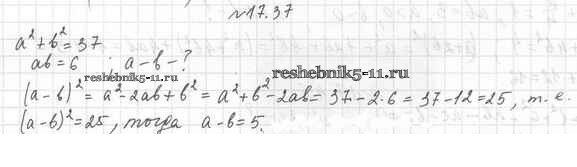 №17.37
a² + b² = 37
ab = 6 ; a - b - ?
reshebnik5-11.ru
reshebnik5-11.ru
(a - b)² = a² - 2ab + b² = a² + b² - 2ab = 37 - 2·6 = 37 - 12 = 25, т. е.
(a - b)² = 25, тогда a - b = 5.